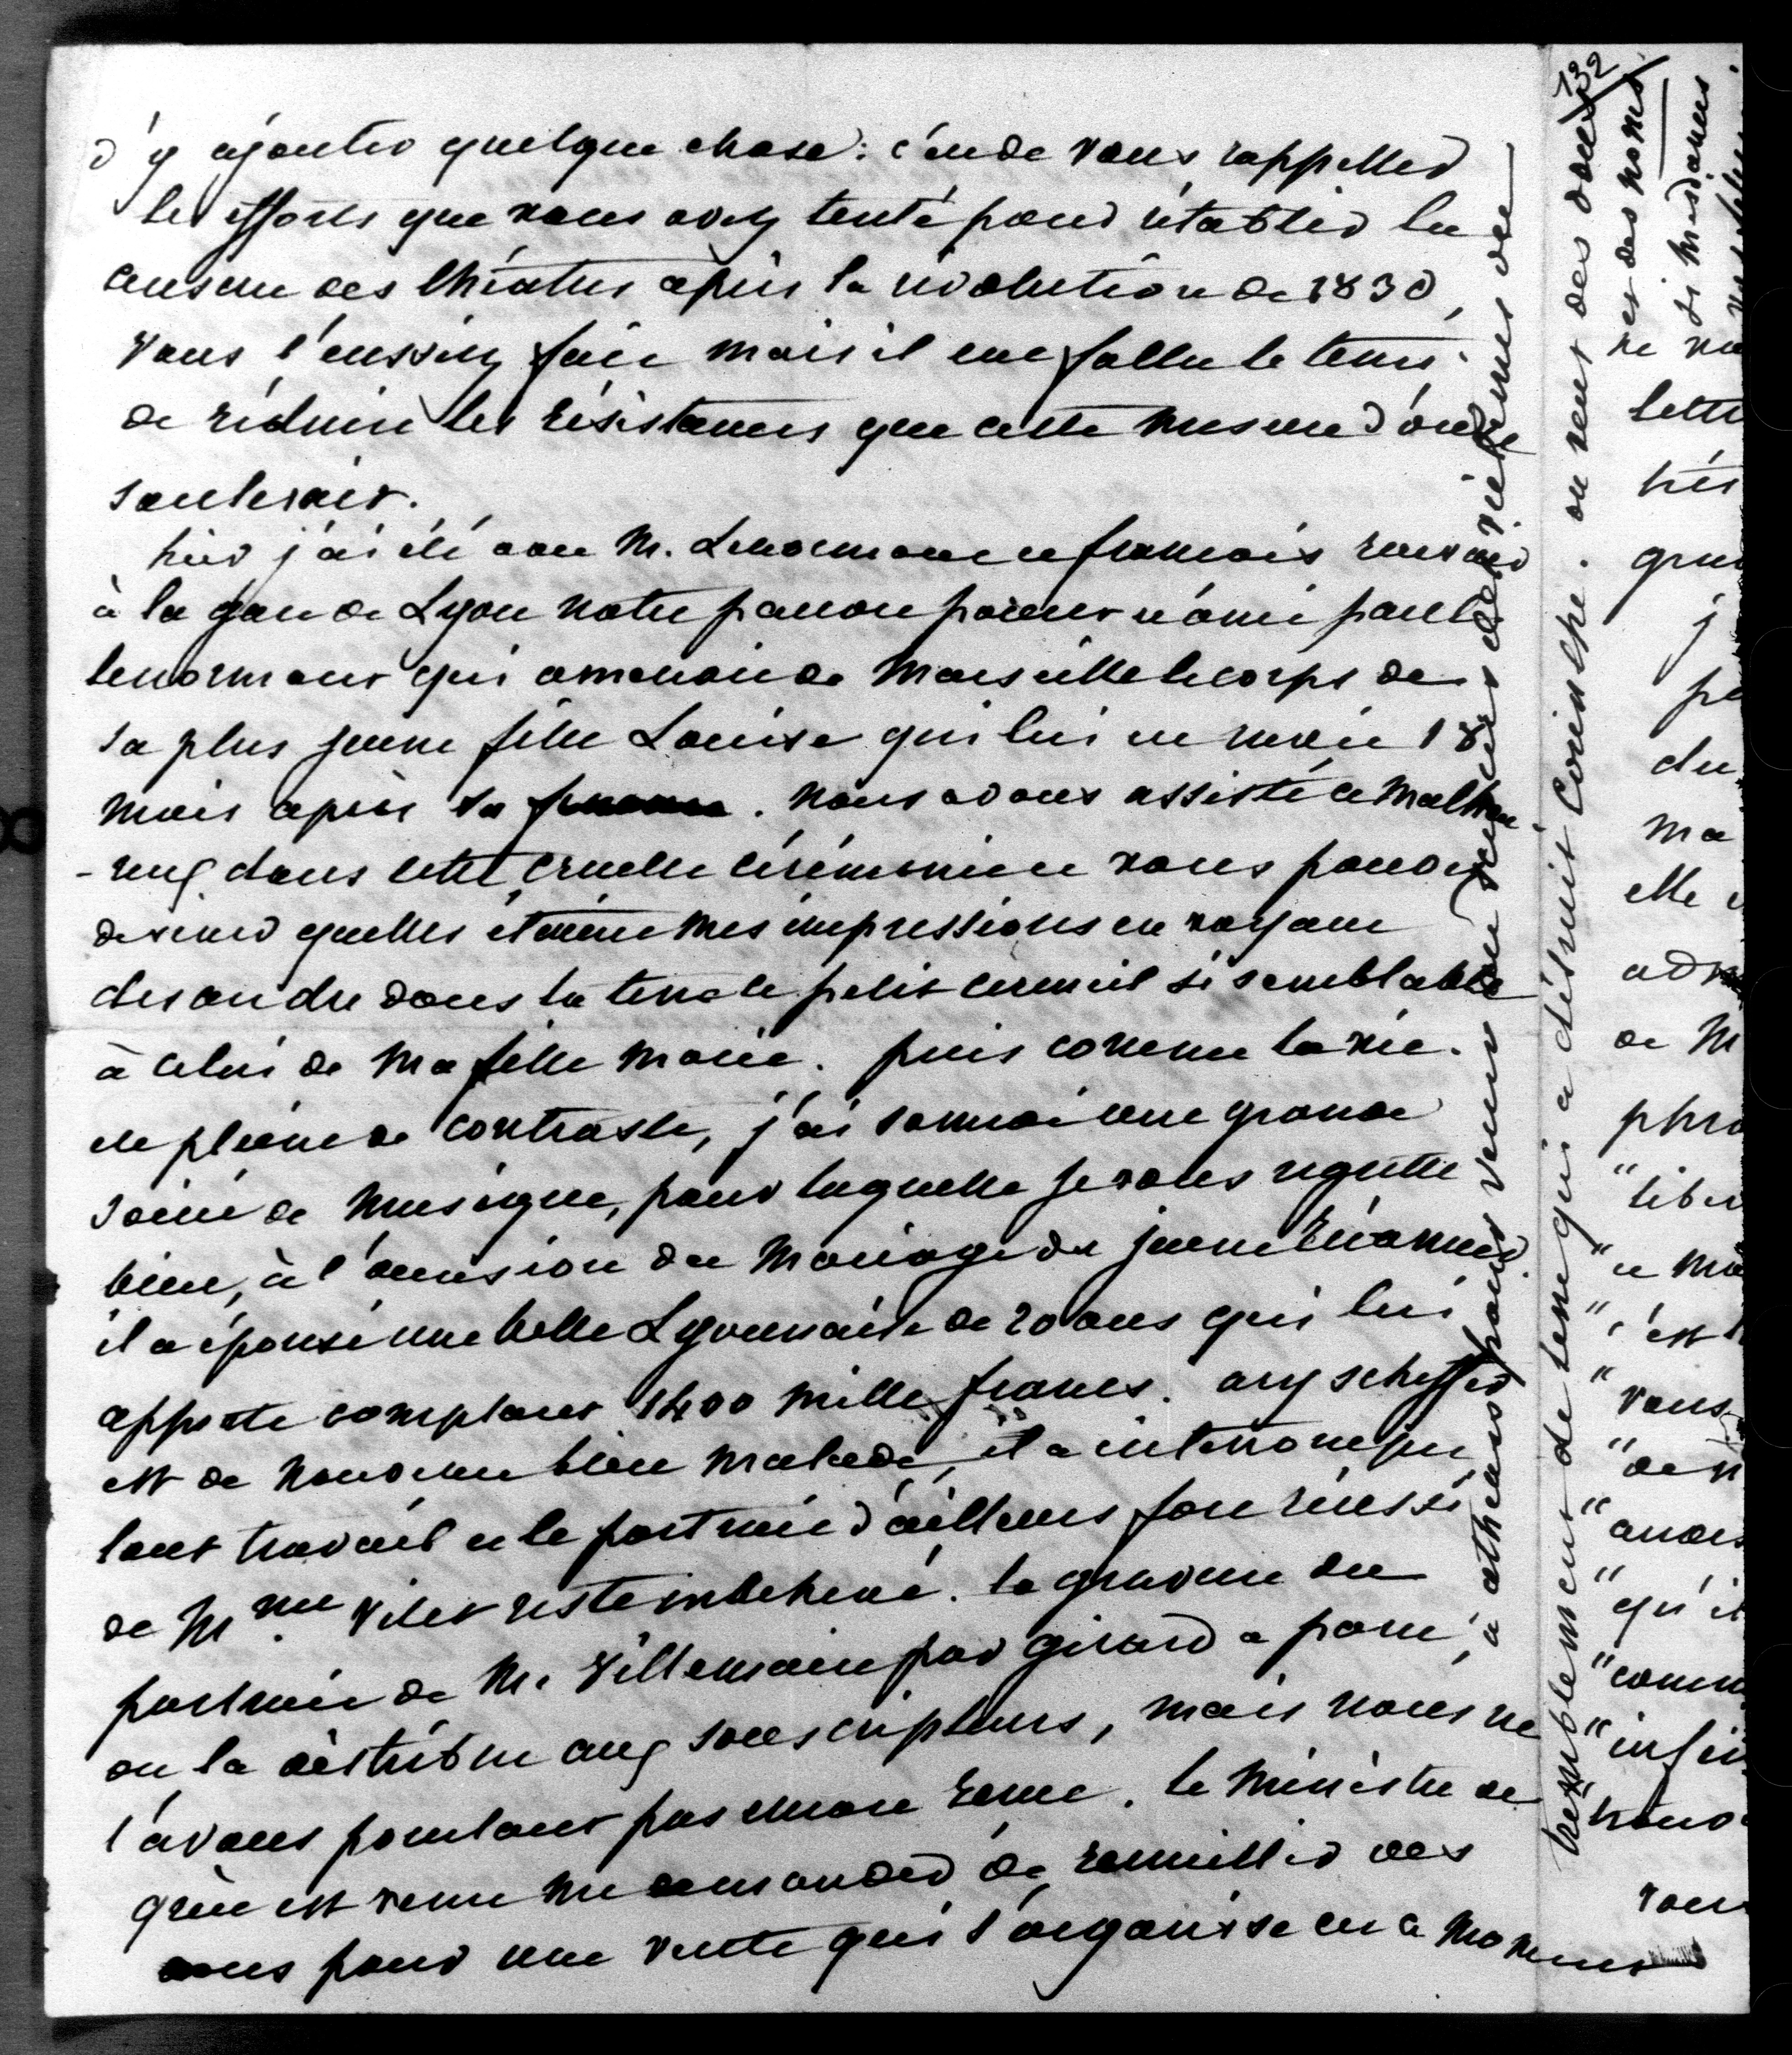 d'y ajouter quelque chose : c'en de vous rappeller
les efforts que vous avez tenté pour rétablir la
censure des théatres après la révolution de 1830,
vous l'eussiez faie mais il eue fallu le tems
de réduire les résistances que cette mesure d'ordre
soulevait.
hier j'ai été avec M. Lenormant et francois recevoir
à la gare de Lyon notre pauvre parent et ami paul
lenormant qui amenait de Marseille le corps de
sa plus jeune fille Louise qui lui est morte 18
mois après sa femme. nous avons assisté ce malheu
-reux dans cette cruelle cérémonie et vous pouvez
deviner quelles étaient mes impressions en voyant
descendre dans la terre le petit cercueil si semblable
à celui de ma fille Marie. puis comme la vie
est pleine de contraste, j'ai donné une grande
soirée de musique, pour laquelle je vous regrette
bien, à l'occasion du mariage du jeune
il a épousé une belle Lyonnaise de 20 ans qui lui
apporte comptant 1400 mille francs. ary scheffer
est de nouveau bien malade, il a interrompu
tout travail et le portrait d'ailleurs fort réussi
de Mme Vitet reste inachevé. la gravure du
portrait de M. Villemain par girard a paru,
on la distribue aux souscripteurs, mais nous ne
l'avons pourtant pas encore reçue. le ministre de
grèce est venu me demander de recueillir des
dons pour une vente qui s'organise en ce moment
à athènes pour venir au secours des victimes du
tremblement de terre qui a détruit Corinthe. on veut des
132
des noms
ne
lettr
très
gran
j
pe
du
ma
elle
adm
de M
phra
"liber
"et
"c'est
"vous
"de
"
"qu'il
"comm
"
"
vous